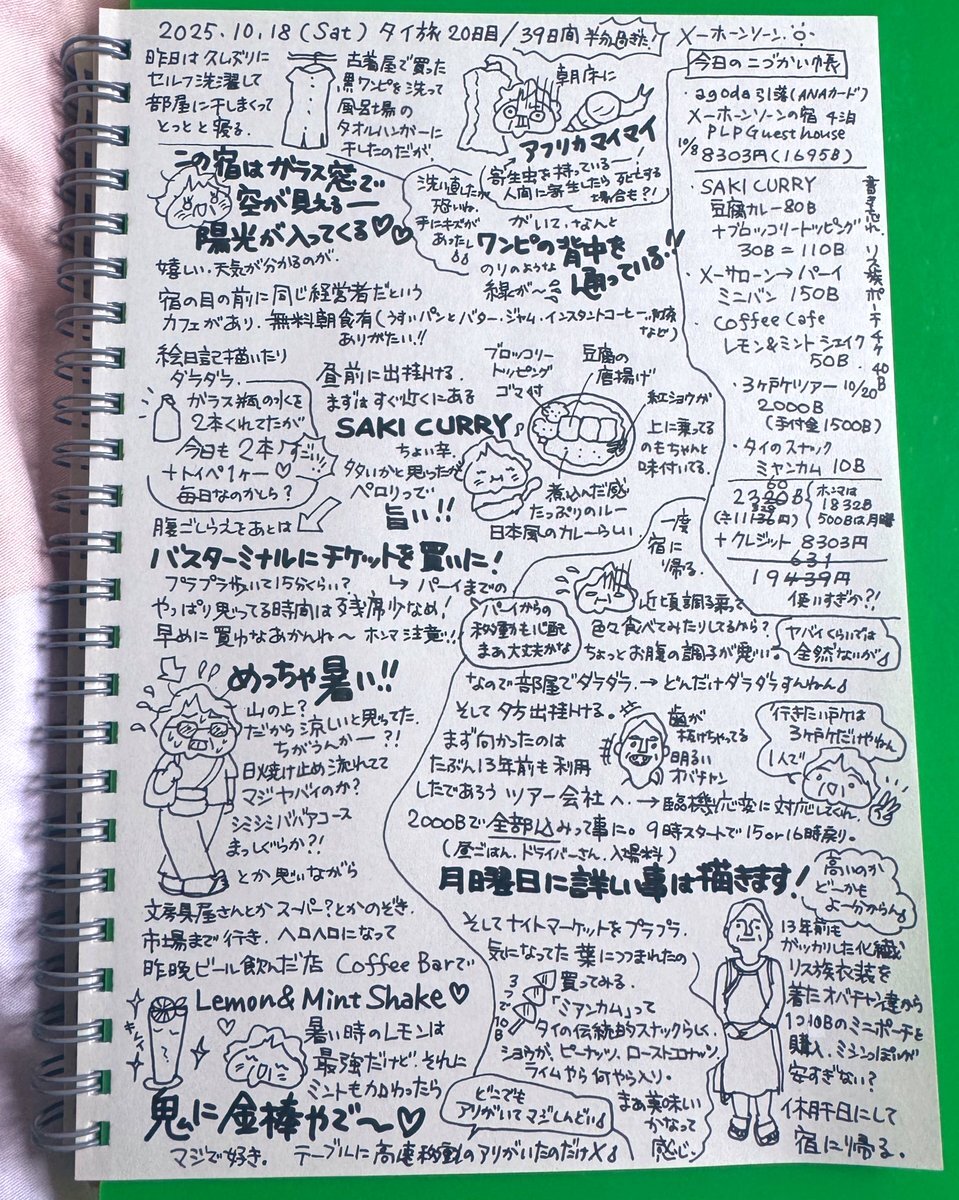 2025.10.18 (Sat) タイ旅 20日目/39日間 半分過ぎた! メーホーンソーン
昨日は久しぶりに
セルフ洗濯して
部屋に干しまくって
とっとと寝る.
古着屋で買った
黒ワンピを洗って
風呂場の
タオルハンガーに
干したのだが、
朝床に
アフリカマイマイ
寄生虫を持っているー!
人間に寄生したら死亡する
場合も?!
がいて、なんと
ワンピの背中を
のりのような
線が〜
通っている!!
洗い直したが
恐いね.
手にキズが
あったし
この宿はガラス窓で
空が見えるー
陽光が入ってくる♡♡
嬉しい、天気が分かるのが.
宿の目の前に同じ経営者だという
カフェがあり、無料朝食有(うすいパンとバター・ジャム・インスタントコーヒー、紅茶
など)
ありがたい!!
絵日記描いたり
ダラダラ.
ガラス瓶の水を
2本くれてたが
今日も2本♪すごい
+トイペ1ヶー♡
毎日なのかしら?
昼前に出掛ける.
まずはすぐ近くにある
SAKI CURRY♪
ちょい辛.
多いかと思ったが
ペロリって
旨い!!
ブロッコリー
トッピング
ゴマ付
豆腐の
唐揚げ
紅ショウが
上に乗ってる
のもちゃんと
味付いてる.
煮込んだ感
たっぷりのルー
日本風のカレーらしい
腹ごしらえをあとは
バスターミナルにチケットを買いに!
ブラブラ歩いて15分くらい? ↳パーイまでの
やっぱり思ってる時間は残席少なめ!
早めに買わなあかんね〜 ホンマ注意!!
パーイからの
移動も心配
まあ大丈夫かな
めっちゃ暑い!!
山の上?
だから涼しいと思ってた.
ちがうんかー?!
日焼け止め流れてて
マジヤバイのか?
シミシミババアコース
まっしぐらか?!
とか思いながら
文房具屋さんとかスーパー?とかのぞき.
市場まで行き、ヘロヘロになって
昨晩ビール飲んだ店 Coffee Barで
Lemon & Mint Shake♡
暑い時のレモンは
最強だけど、それに
ミントも加わったら
鬼に金棒やで〜♡
マジで好き.
テーブルに高速移動のアリがいたのだけX♪
どこでも
アリがいてマジしんどい♪
一度
宿に
帰る.
近頃調子乗って
色々食べてみたりしてるから?
ちょっとお腹の調子が悪い.
ヤバイくらいでは
全然ないが♪
なので部屋でダラダラ.→どんだけダラダラすんねん♪
そして夕方出掛ける.
まず向かったのは
たぶん13年前も利用
したであろうツアー会社へ.→臨機応変に対応してくれ.
歯が
抜けちゃってる
明るい
オバチャン
行きたい所は
3ヶ所だけやねん
1人で
2000Bで全部込みって事に. 9時スタートで15or16時戻り.
(昼ごはん、ドライバーさん、入場料)
月曜日に詳しい事は描きます!
高いのか
どーかも
よー分からん♪
そしてナイトマーケットをブラブラ.
気になってた葉につつまれたの
3つで10B
買ってみる.
「ミアンカム」って
タイの伝統的スナックらしく.
ショウが、ピーナッツ、ローストココナッツ、
ライムやら何やら入り.
まあ美味い
かなって
感じ.
13年前も
ガッカリした化繊
リス族衣装を
着たオバチャン達から
1つ40Bのミニポーチを
購入、ミシンっぽいが
安すぎない?
休肝日にして
宿に帰る.
今日のこづかい帳
・agoda引落(ANAカード)
メーホーンソーンの宿 4泊
PLP Guest house
10/8 8303円(1695B)
・SAKI CURRY
豆腐カレー80B
+ブロッコリートッピング
30B=110B
・メーサローン→パーイ
ミニバン 150B
・Coffee Cafe
レモン&ミントシェイク
50B.
・3ヶ所ツアー 10/20
2000B
(手付金1500B)
・タイのスナック
ミャンカム 10B
書き忘れ、リス族ポーチ1ヶ 40B
ホンマは
1832B
500Bは月曜
+クレジット 8303円
使いすぎか?!